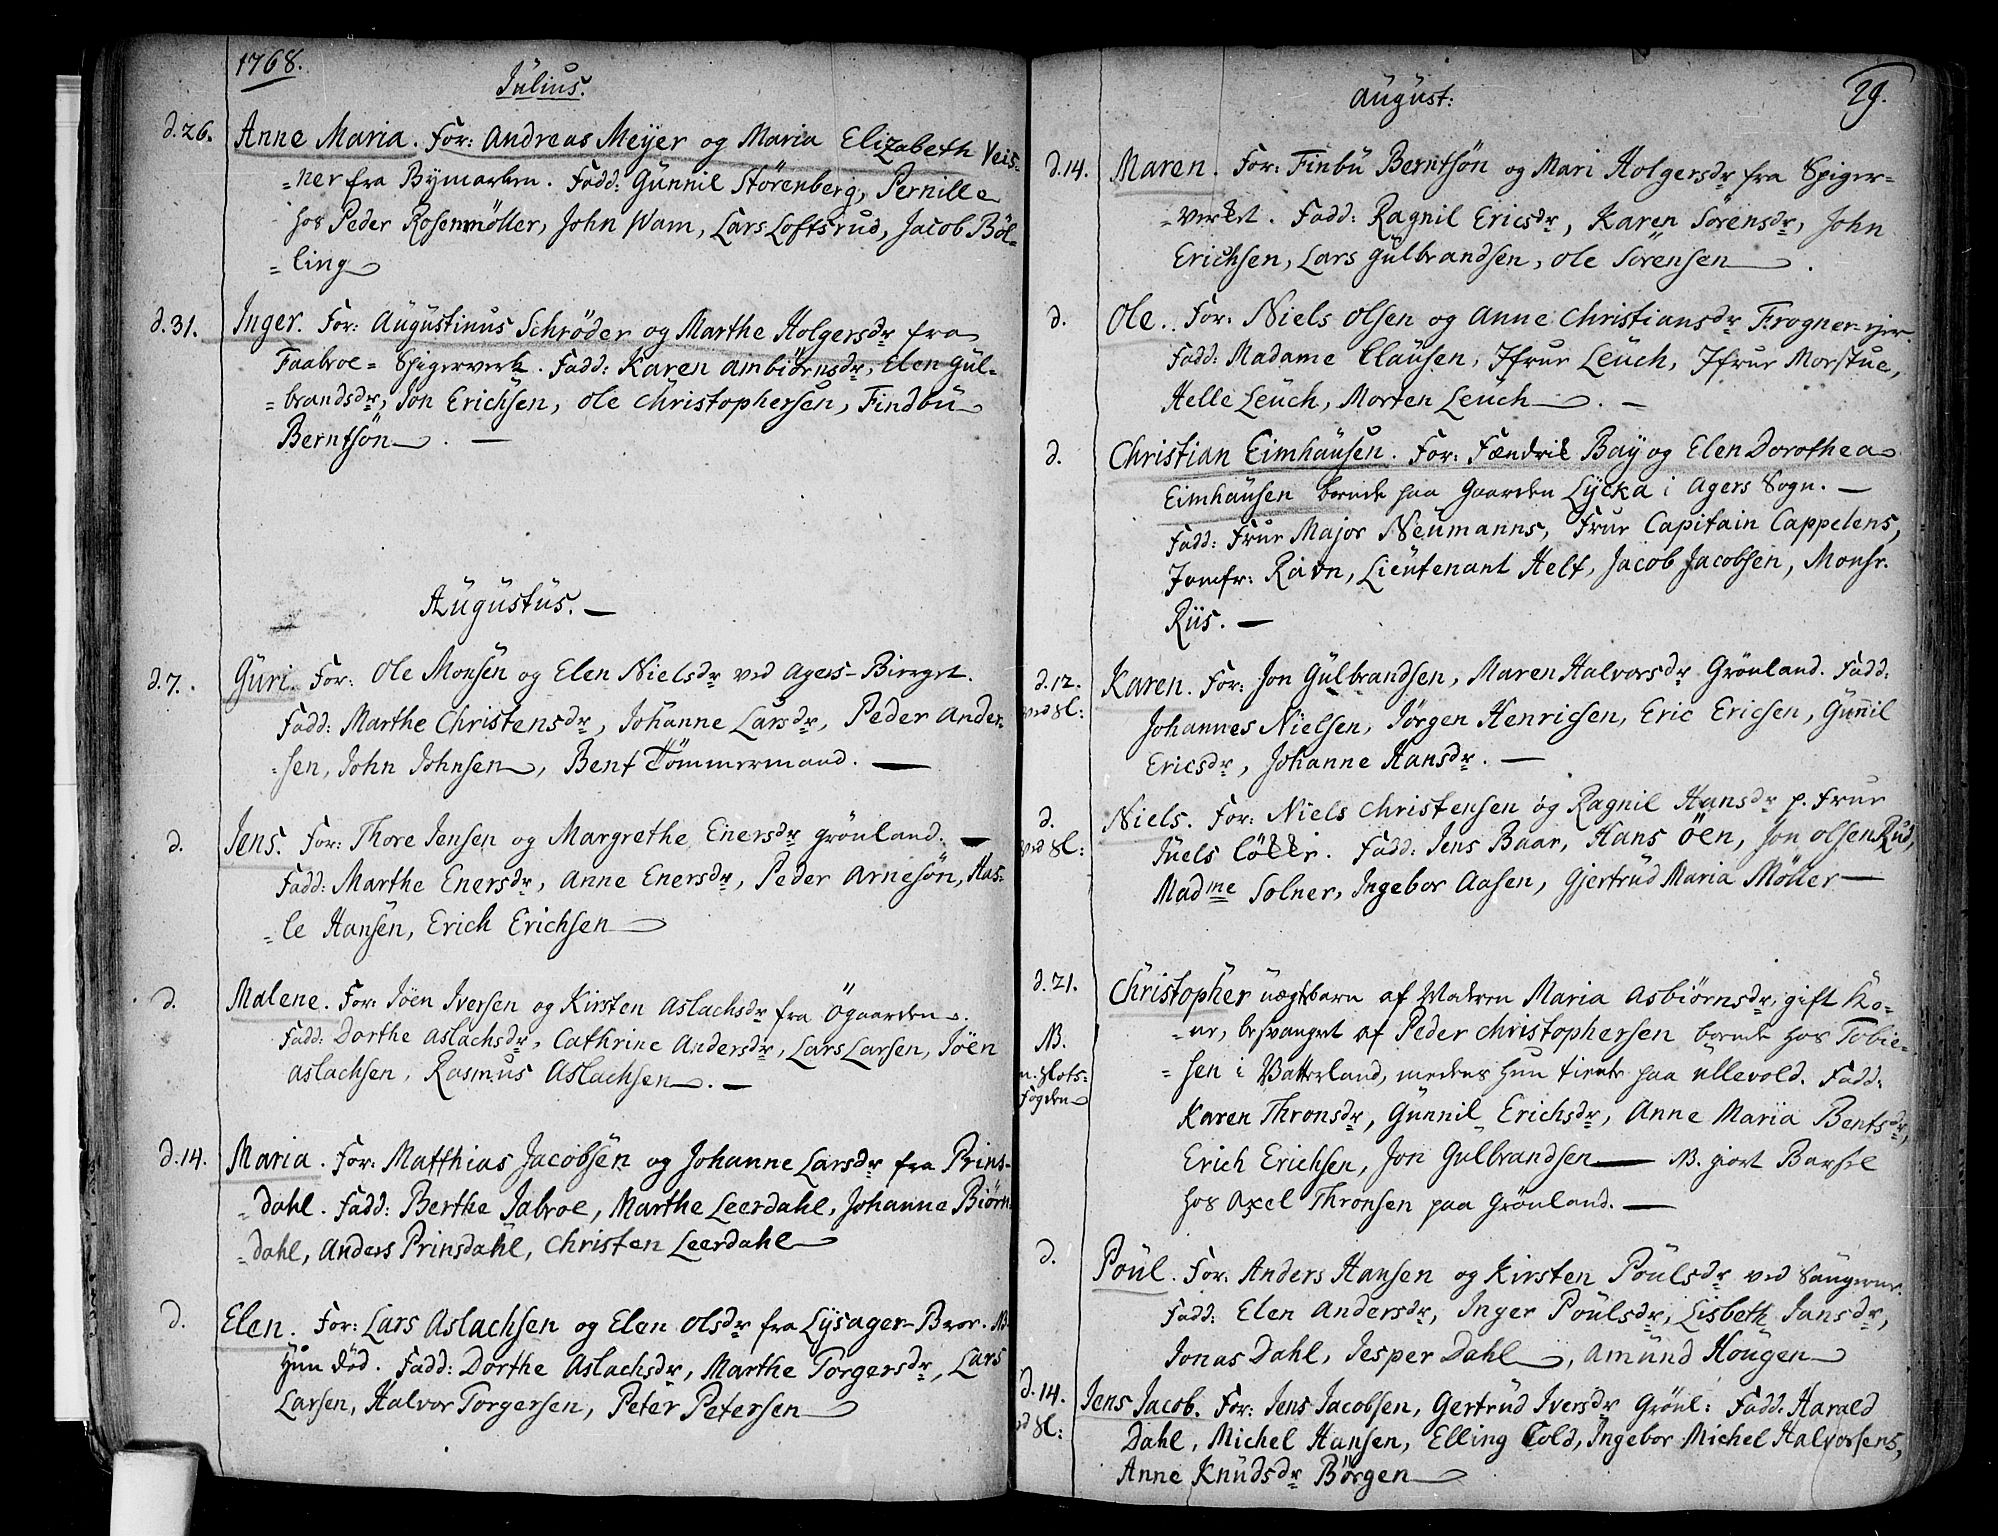 1768.
Julius.
d. 26. Anne Maria. For: Andreas Meÿer og Maria Elizabeth Veis-
=ner fra Bymarken. Fadd: Gunnil Störenberg, Pernille
hos Peder Rosenmöller, John Wam, Lars Loftsrud, Jacob Böl-
=ling
d. 31. Inger. For: Augustinus Schrøder og Marthe Holgersdr fra
Faabroe= Spigerverk. Fadd: Karen Ambiörnsdr, Elen Gul-
=brandsdr, Jon Erichsen, Ole Christophersen, Findbu
Berntsön. —
Augustus. —
d. 7. Guri. For: Ole Monsen og Elen Nielsdr ved Agers-Bierget.
Fadd: Marthe Christensdr, Johanne Larsdr, Peder Ander-
=sen, John Johnsen, Bent Tömmermand. —
d. Jens. For: Thore Jensen og Margrethe Enersdr Grönland. —
Fadd: Marthe Enersdr, Anne Enersdr, Peder Arnesön, Has-
=le Hansen, Erich Erichsen
d. Malene. For: Jöen Iversen og Kirsten Aslachsdr fra Ögaarden.
Fadd: Dorthe Aslachsdr, Cathrine Andersdr, Lars Larsen, Jöen
Aslachsen, Rasmus Aslachsen. —
d. 14. Maria. For: Matthias Jacobsen og Johanne Larsdr fra Prins-
=dahl. Fadd: Berthe Jabroe, Marthe Leerdahl, Johanne Biörn-
=dahl, Anders Prinsdahl, Christen Leerdahl
d. Elen. For: Lars Aslachsen og Elen Olsdr fra Lysager-Broe. NB.
Hun död. Fadd: Dorthe Aslachsdr, Marthe Torgersdr, Lars
Larsen, Halvor Torgersen, Peter Petersen
August:
29.
d. 14. Maren. For: Finbu Berntsön og Mari Holgersdr fra Spiger-
=verket. Fadd: Ragnil Ericsdr, Karen Sörensdr, John
Erichsen, Lars Gulbrandsen, Ole Sörensen.
d. Ole. For: Niels Olsen og Anne Christiansdr Frogner-ejer.
Fadd: Madame Clausen, Jfrue Leuch, Jfrue Morstue,
Helle Leuch, Morten Leuch. —
d. Christian Eimhausen. For: Fændrik Baÿ og Elen Dorothea
Eimhausen boende paa Gaarden Lÿcka i Agers Sogn. —
Fadd: Frue Major Neumanns, Frue Capitain Cappelens,
Jomfr: Ravn, Lieutenant Helt, Jacob Jacobsen, Monsr.
Riis. —
d. 12. ved Sl: Karen. For: Jon Gulbrandsen, Maren Halvorsdr Grönland. Fadd:
Johannes Nielsen, Jörgen Henricsen, Eric Ericsen, Gunnil
Ericsdr, Johanne Hansdr. —
d. ved Sl: Niels. For: Niels Christensen og Ragnil Hansdr p. Frue
Juels Lökke. Fadd: Jens Baar, Hans Öen, Jon Olsen Rud,
Madme Solner, Ingebor Aasen, Gjertrud Maria Möller —
d. 21. Christopher uægtebarn af Moderen Maria Asbiörnsdr, gift Ko-
=ne, besvangret af Peder Christophersen boende hos Tobie-
NB. =sen i Vatterland, medens hun tiente paa Ullevold. Fadd:
n. Slots-
Fogden
Karen Thronsdr, Gunnil Erichsdr, Anne Maria Bentsdr,
Erich Erichsen, Jon Gulbrandsen — NB. giort Barsel
hos Axel Thronsen paa Grönland. —
d. Poul. For: Anders Hansen og Kirsten Poulsdr ved Saugerne.
Fadd: Elen Andersdr, Inger Poulsdr, Lisbeth Jansdr,
Jonas Dahl, Jesper Dahl, Amund Hougen
d. 14. ved Sl: Jens Jacob. For: Jens Jacobsen, Gertrud Iversdr Grönl: Fadd: Harald
Dahl, Michel Hansen, Elling Told, Ingebor Michel Halvorsens,
Anne Knudsdr Börgen